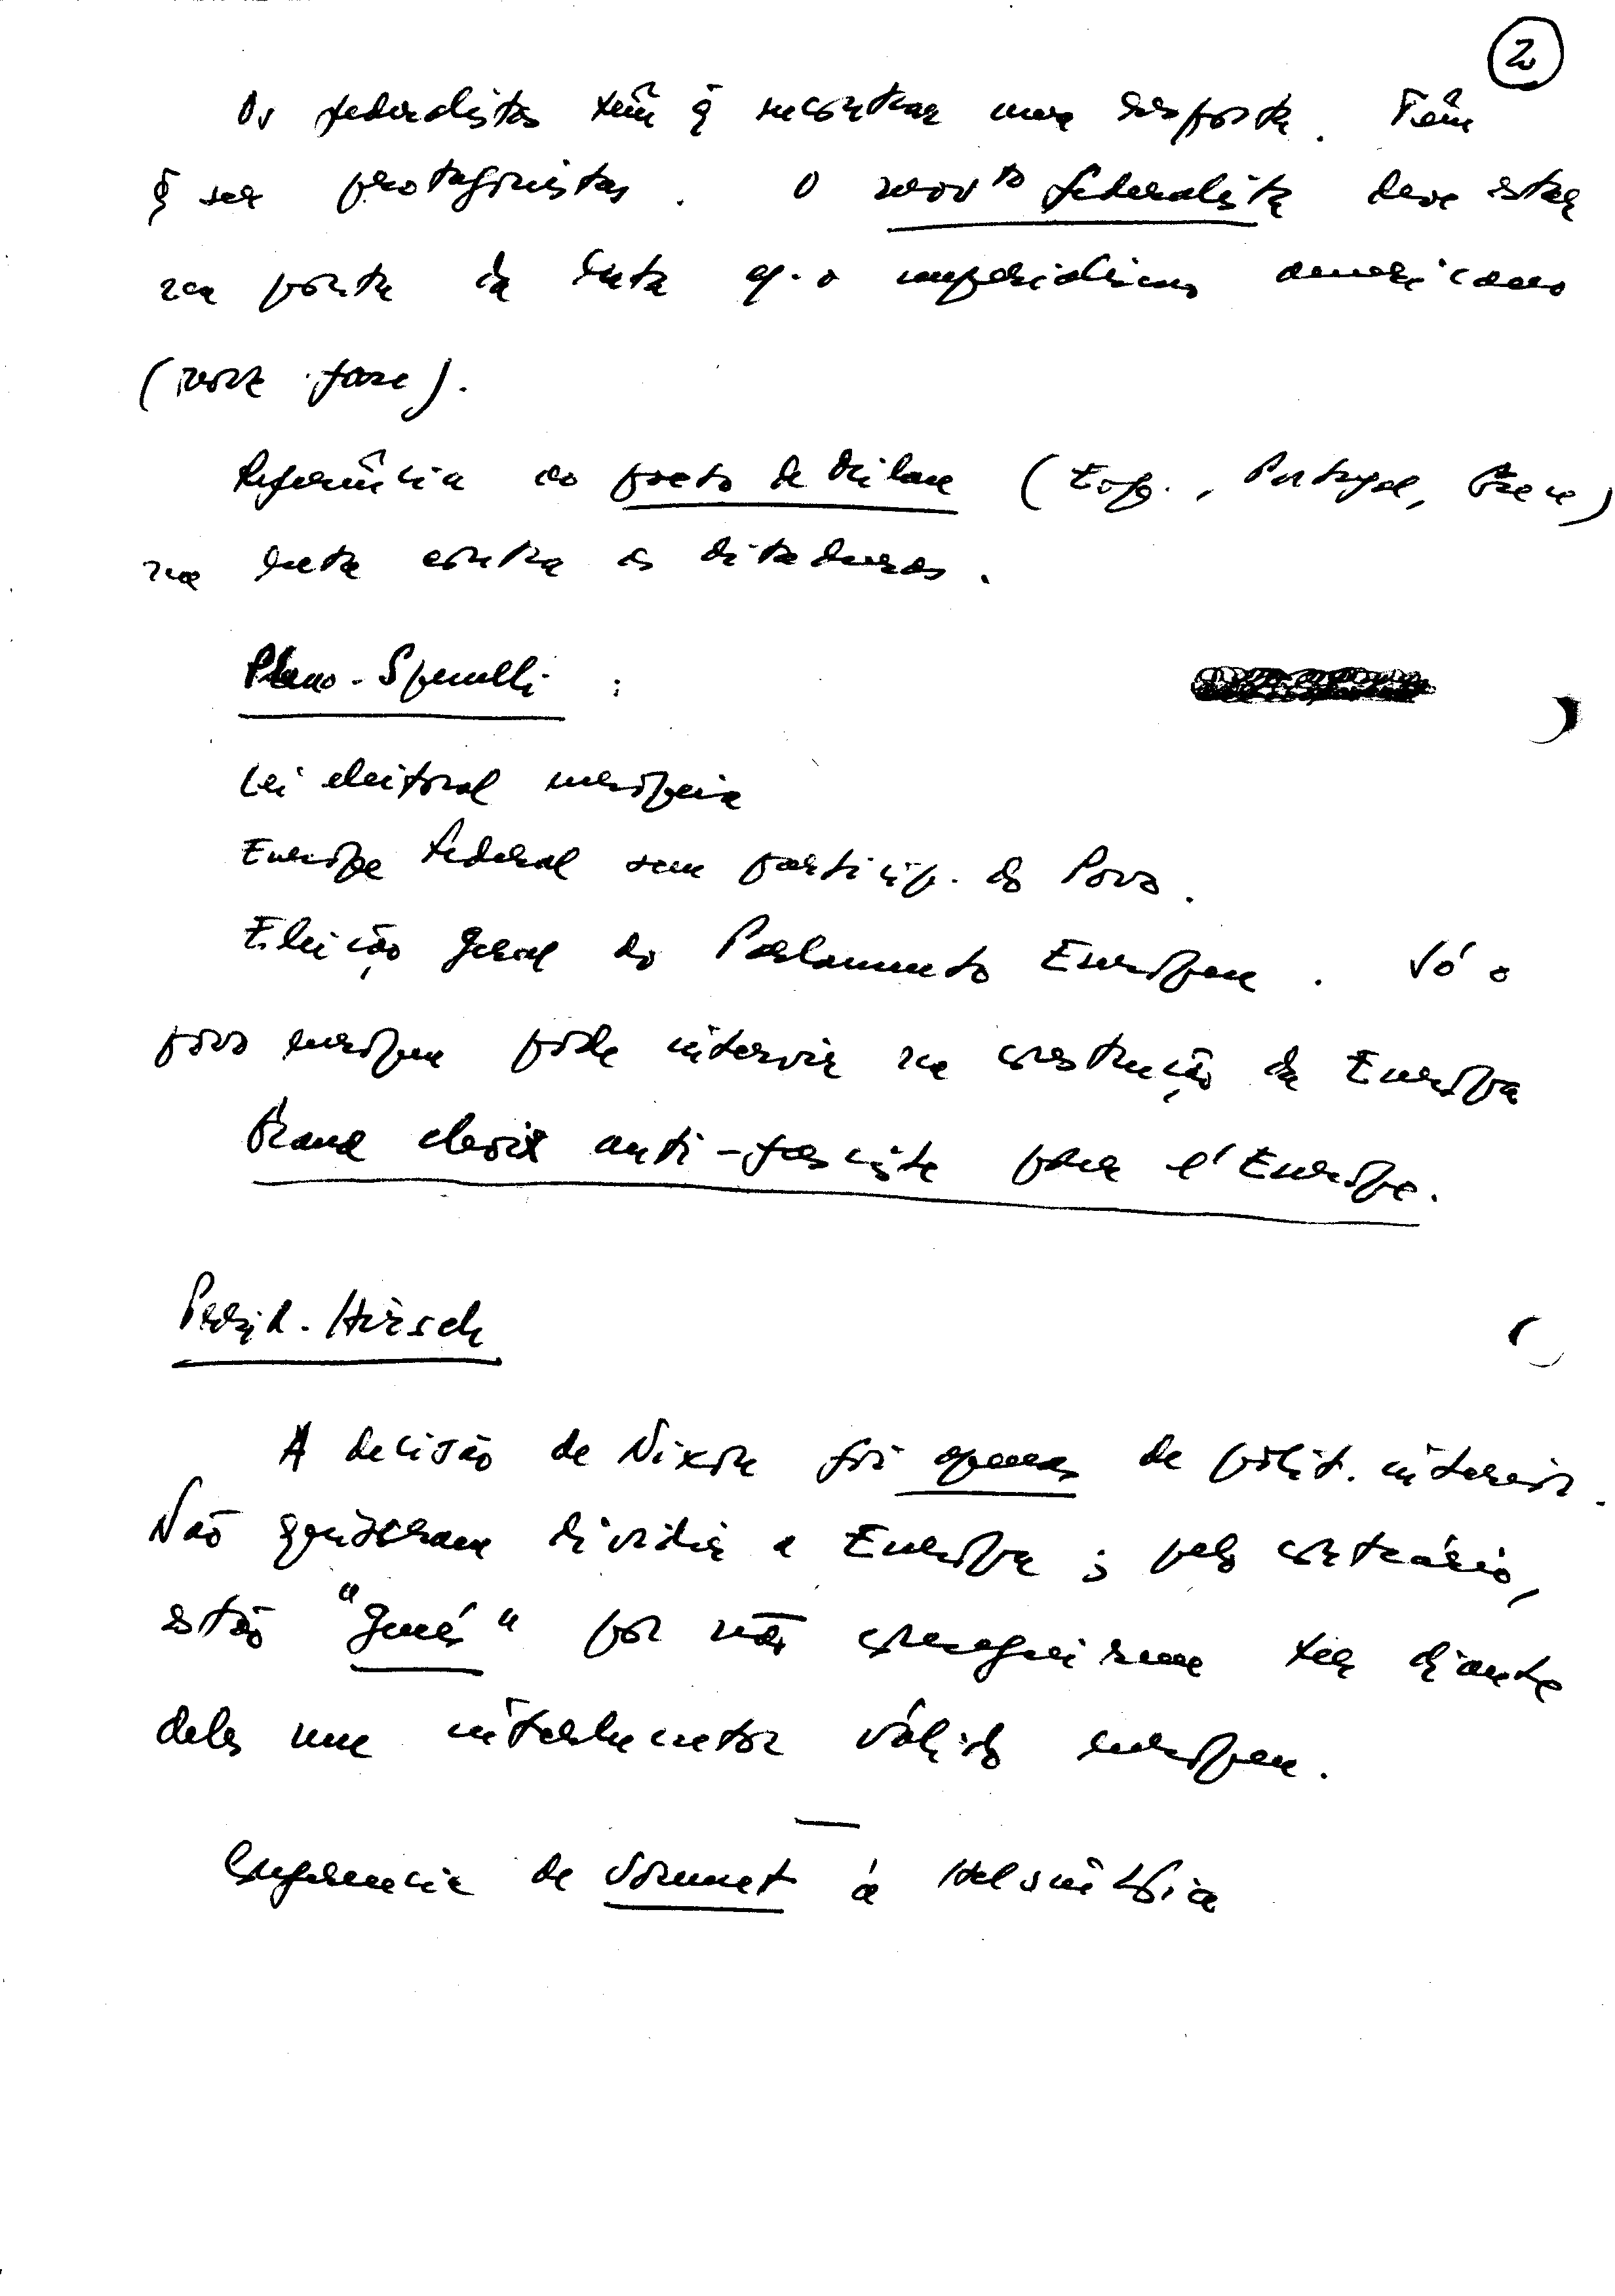 2
Os federalistas têm q̃ encontrar uma resposta. Têm
q̃ ser protagonistas. O movto federalista deve estar
na ponta da luta c. o imperialismo americano
(nova fase).
Referência ao pacto de Milão (Esp., Portugal, Grécia)
na luta contra as ditaduras.
Plano-Spinelli:
Lei eleitoral europeia
Europa federal sem particip. do Povo.
Eleição geral do Parlamento Europeu. Só o
povo europeu pode intervir na construção da Europa
anti-fasciste para l'Europe.
Presid. Hirsch
A decisão de Nixon foi apenas de polít. interior.
Não quiseram dividir a Europa; pelo contrário,
estão "genés" por não conseguirem ter diante
deles um interlocutor válido europeu.
Conferencia de à Helsínquia